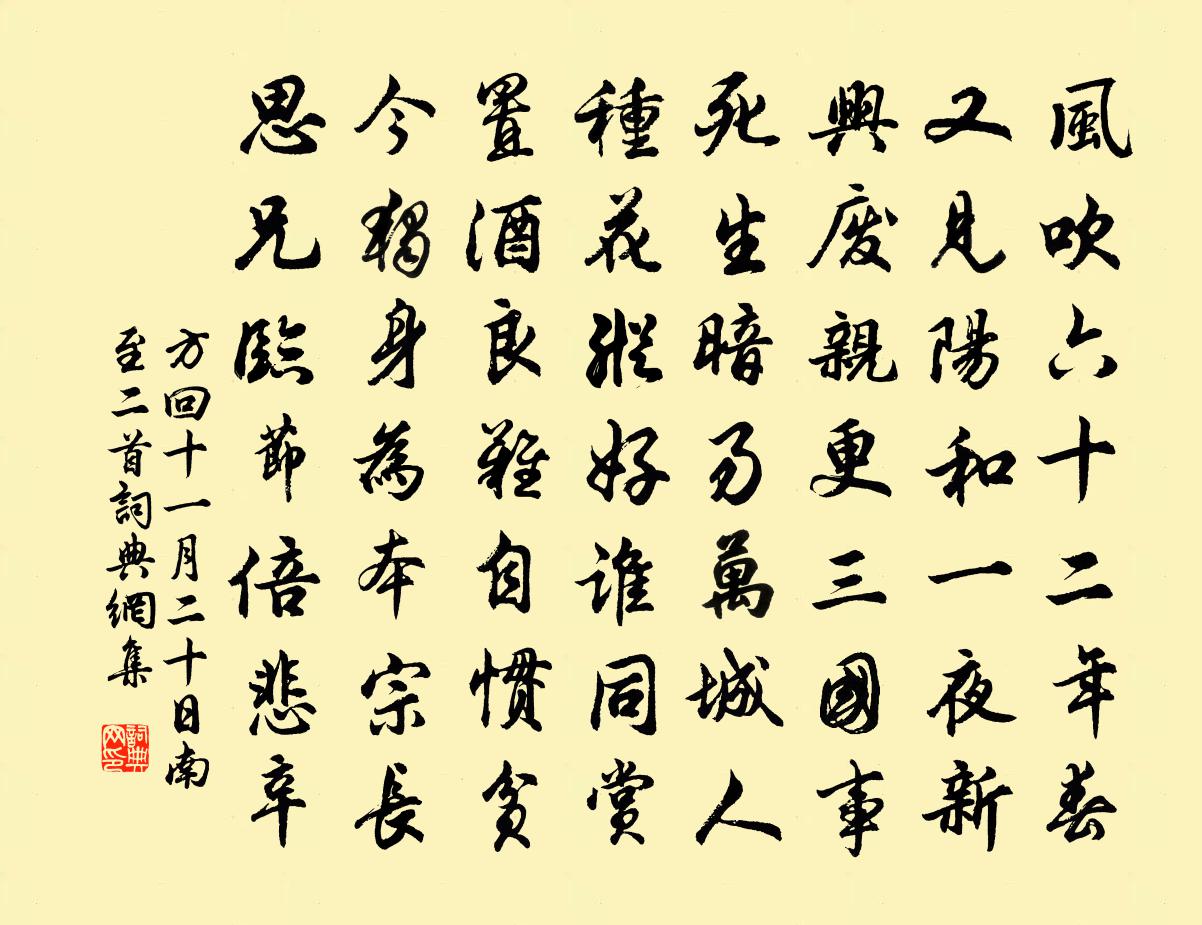 風吹六十二年春
又見陽和一夜新
興廢親更三國事
死生暗易萬城人
種花縱好誰同賞
置酒良難自慣貧
今獨身為本宗長
思兄臨節倍悲辛
方回十一月二十日南
至二首詞典網集
詞典
网印